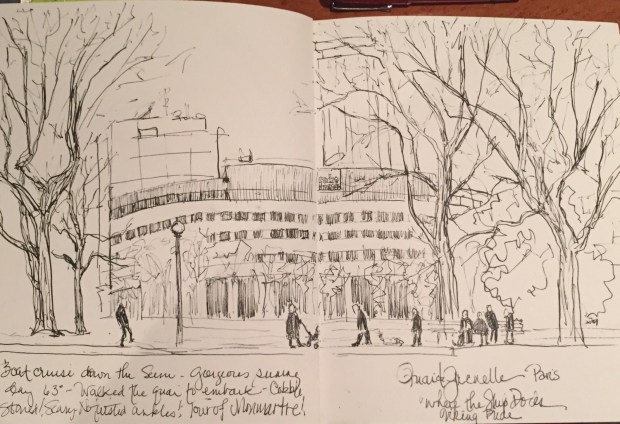 Boat cruise down the Seine - Gorgeous sunny
day 63° - Walked the quai to embark - Cobble
Stones! Scary No twisted ankles! Tour of Monmartre!
Quai de Grenelle - Paris
"Where the Ship Docks
Viking Pride